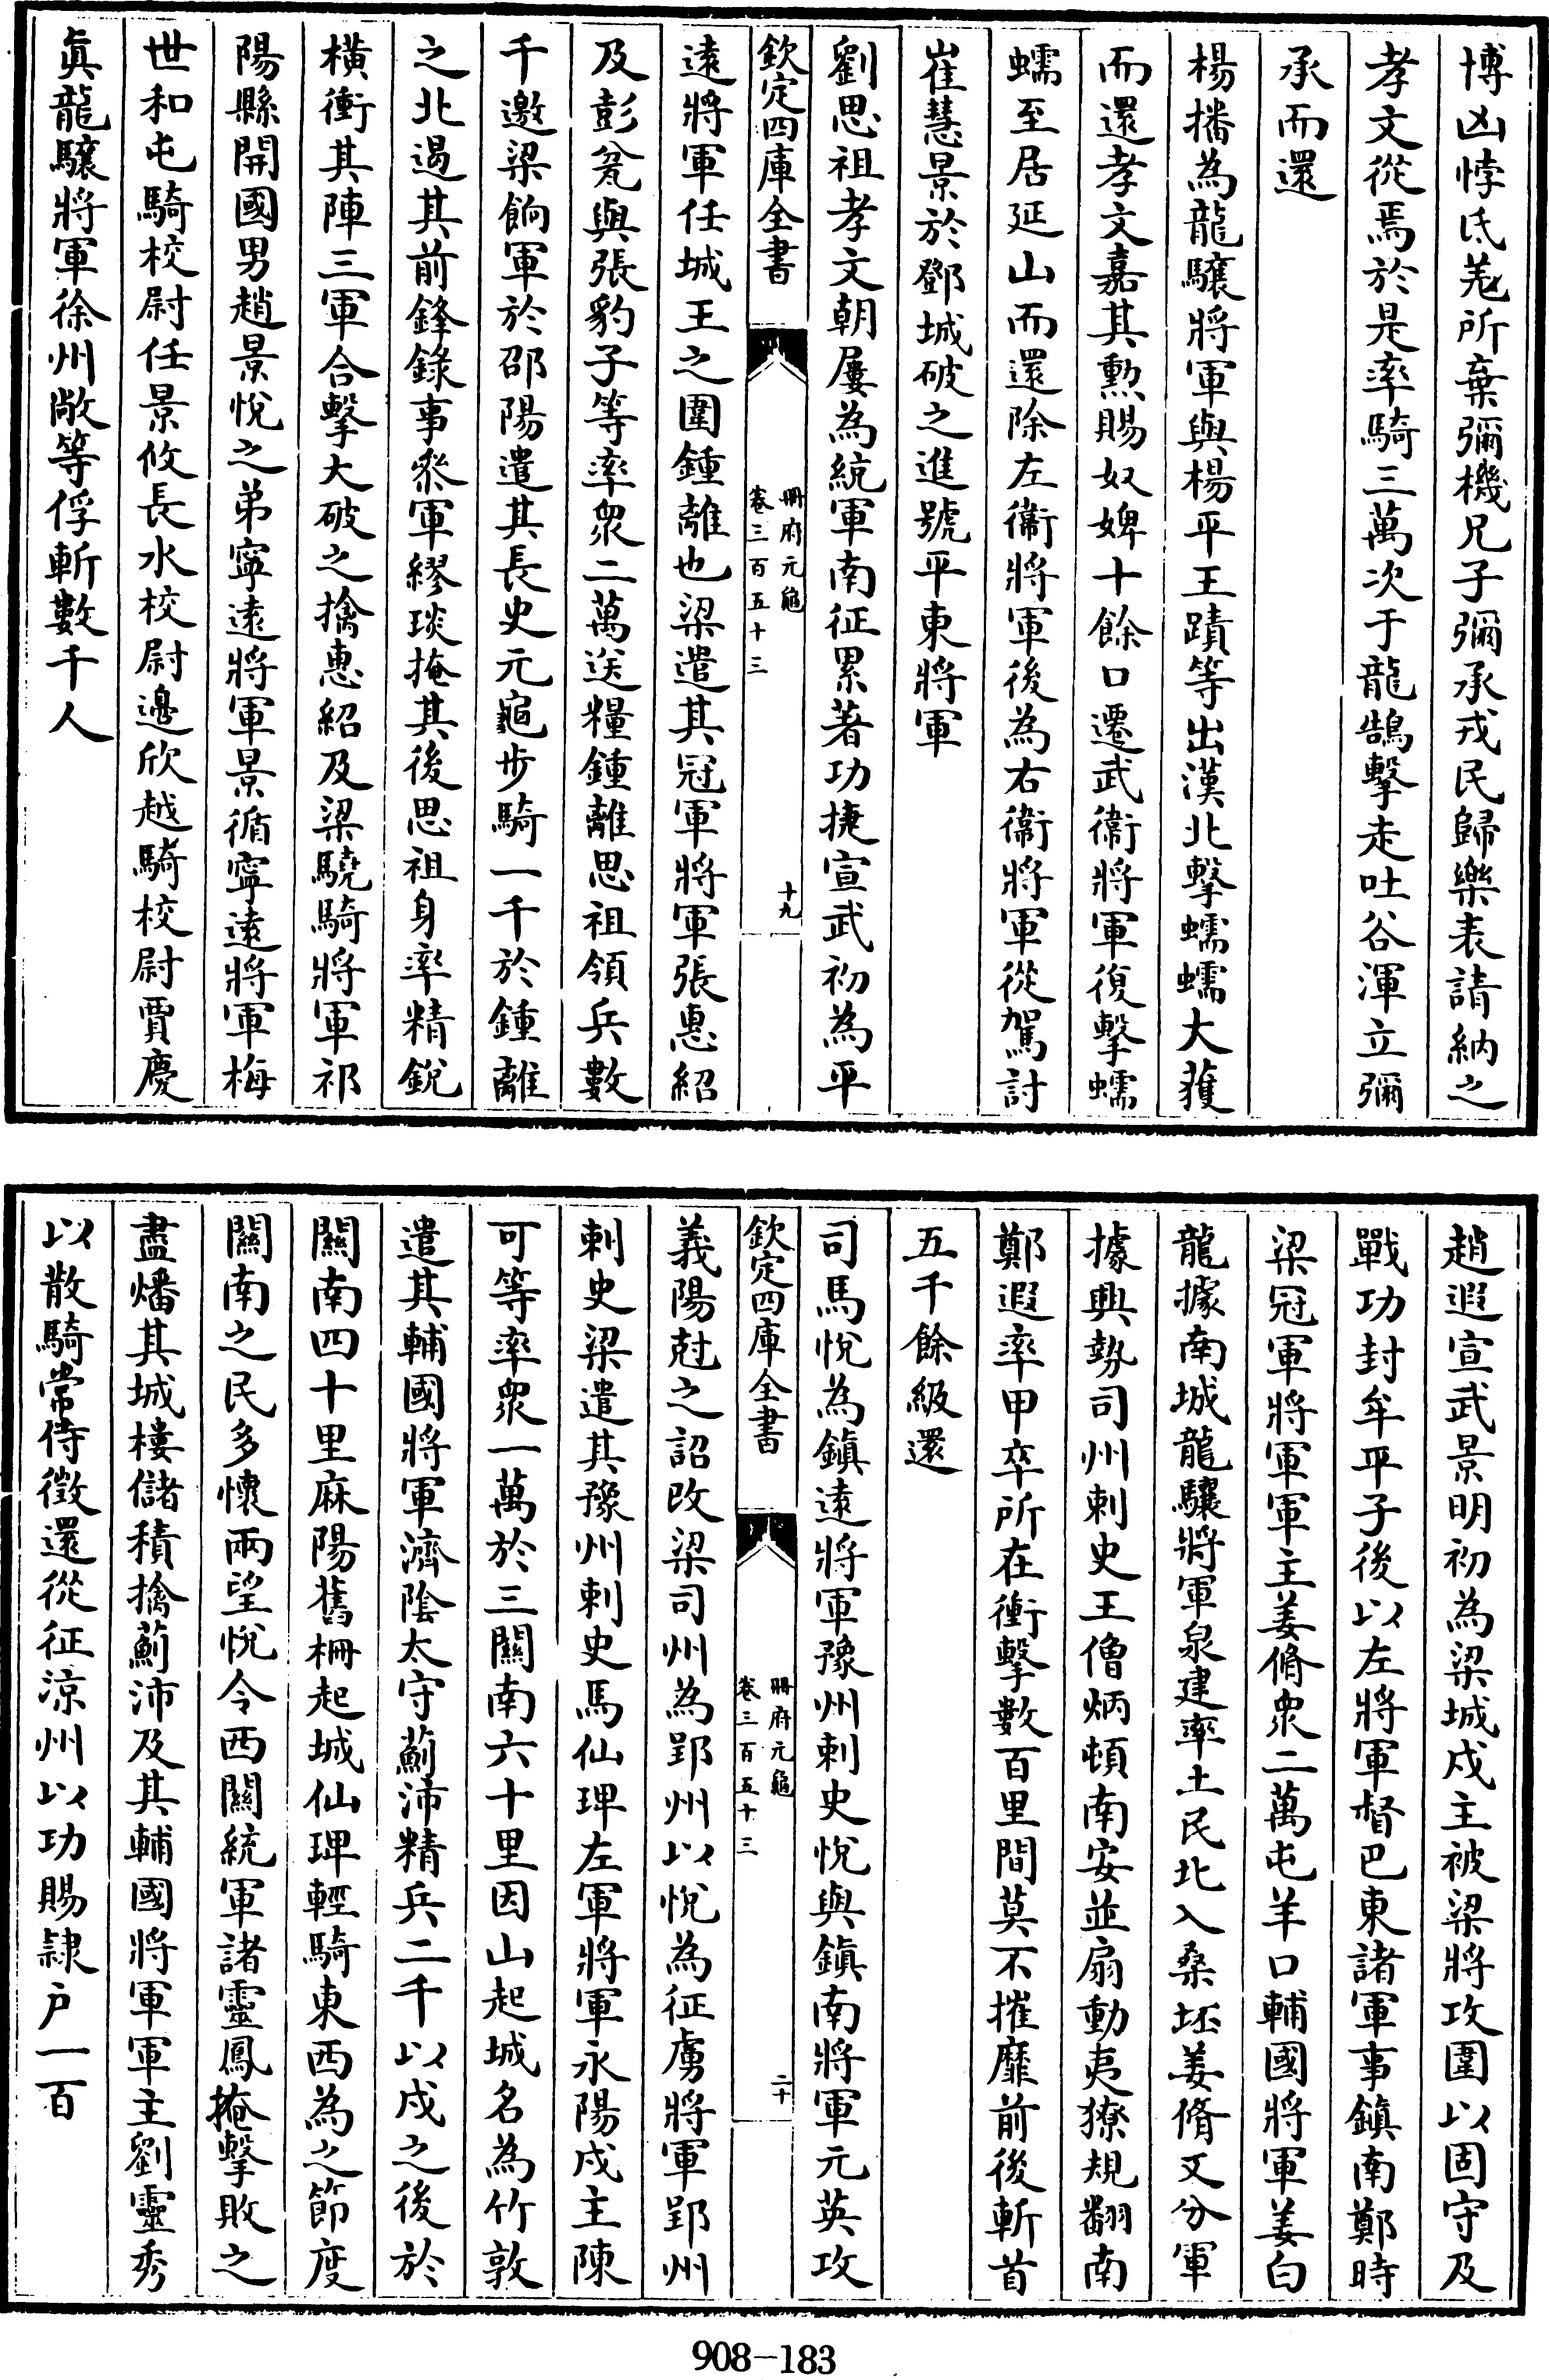 博凶悖氐羌所棄彌機兄子彌承戎民歸樂表請納之
孝文從焉於是率騎三萬次于龍鵠擊走吐谷渾立彌
承而還
楊播為龍驤將軍與楊平王蹟等出漢北擊蠕蠕大獲
而還孝文嘉其勲賜奴婢十餘口遷武衞將軍復擊蠕
蠕至居延山而還除左衞將軍後為右衞將軍從駕討
崔慧景於鄧城破之進號平東將軍
劉思祖孝文朝屢為統軍南征累著功捷宣武初為平
欽定四庫全書
冊府元龜
卷三百五十三
十九
遠將軍任城王之圍鍾離也梁遣其冠軍將軍張惠紹
及彭瓫與張豹子等率衆二萬送糧鍾離思祖領兵數
千邀梁餉軍於邵陽遣其長史元龜步騎一千於鍾離
之北遏其前鋒錄事叅軍繆琰掩其後思祖身率精銳
橫衝其陣三軍合擊大破之擒惠紹及梁驍騎將軍祁
陽縣開國男趙景悅之弟寧遠將軍景循寧遠將軍梅
世和屯騎校尉任景攸長水校尉邊欣越騎校尉賈慶
真龍驤將軍徐州敞等俘斬數千人
趙遐宣武景明初為梁城戍主被梁將攻圍以固守及
戰功封牟平子後以左將軍督巴東諸軍事鎮南鄭時
梁冠軍將軍軍主姜脩衆二萬屯羊口輔國將軍姜白
龍據南城龍驤將軍泉建率土民北入桑坯姜脩又分軍
據興勢司州刺史王僧炳頓南安並扇動夷獠規翻南
鄭遐率甲卒所在衝擊數百里間莫不摧靡前後斬首
五千餘級還
司馬悅為鎮遠將軍豫州刺史悅與鎮南將軍元英攻
欽定四庫全書
冊府元龜
卷三百五十三
二十
義陽尅之詔改梁司州為郢州以悅為征虜將軍郢州
刺史梁遣其豫州刺史馬仙琕左軍將軍永陽戍主陳
可等率衆一萬於三關南六十里因山起城名為竹敦
遣其輔國將軍濟陰太守薊沛精兵二千以戍之後於
關南四十里麻陽舊柵起城仙琕輕騎東西為之節度
關南之民多懷兩望悅令西關統軍諸靈鳳掩擊敗之
盡燔其城樓儲積擒薊沛及其輔國將軍軍主劉靈秀
以散騎常侍徵還從征涼州以功賜隷户一百
908-183